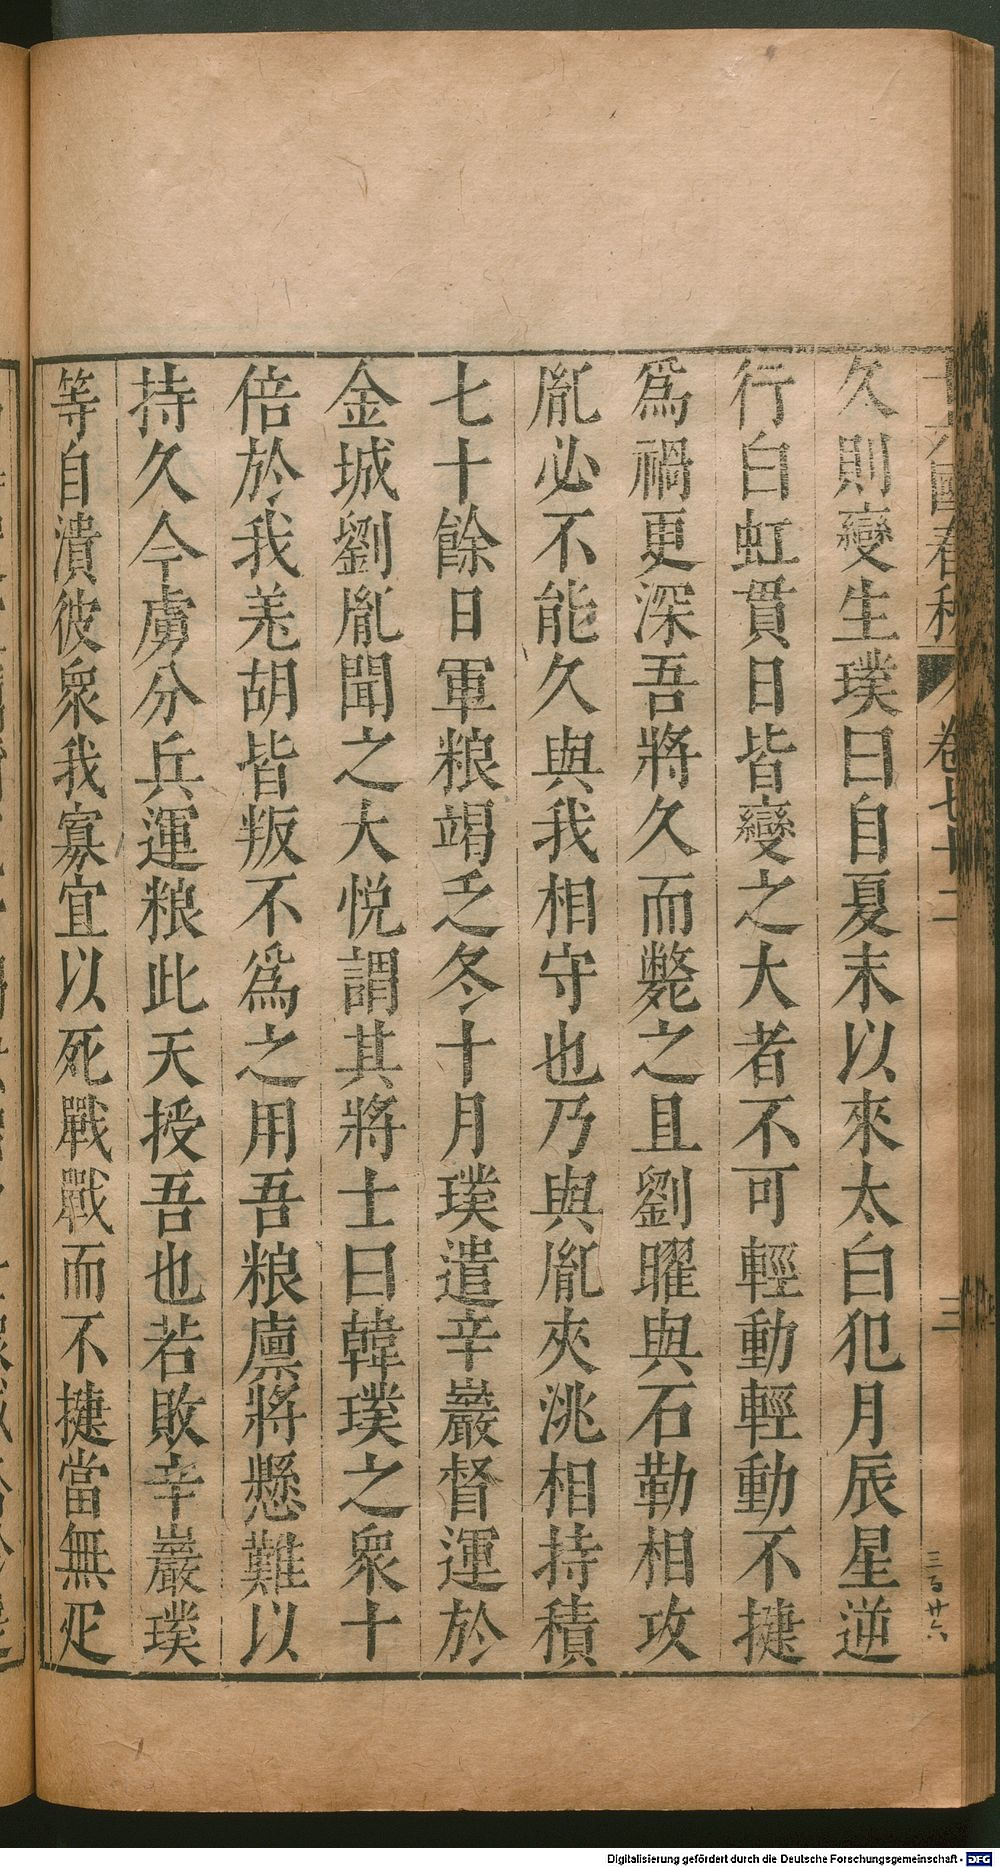 十六國春秋 卷七十二 三
久則變生璞曰自夏末以來太白犯月辰星逆
行白虹貫日皆變之大者不可輕動輕動不捷
爲禍更深吾將久而斃之且劉曜與石勒相攻
胤必不能久與我相守也乃與胤夾洮相持積
七十餘日軍粮竭乏冬十月璞遣辛巖督運於
金城劉胤聞之大悅謂其將士曰韓璞之衆十
倍於我羗胡皆叛不爲之用吾粮廪將懸難以
持久今虜分兵運粮此天授吾也若敗辛巖璞
等自潰彼衆我寡宜以死戰戰而不捷當無疋
三百廿六
Digitalisierung gefördert durch die Deutsche Forschungsgemeinschaft - DFG